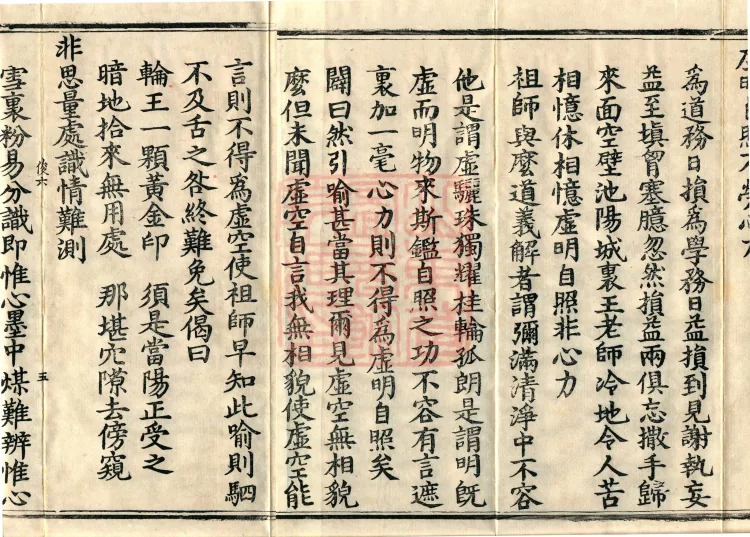 為道務日損為學務日益損到見謝執妄
益至填胷塞臆忽然損益兩俱忘撒手歸
來面空壁池陽城裏王老師冷地令人苦
相憶休相憶虛明自照非心力
祖師與麼道義解者謂彌滿清淨中不容
他是謂虛驪珠獨耀桂輪孤朗是謂明旣
虛而明物來斯鑑自照之功不容有言遮
裏加一毫心力則不得為虛明自照矣
闢曰然引喻甚當其理爾見虛空無相貌
麼但未聞虛空自言我無相貌使虛空能
言則不得為虛空使祖師早知此喻則駟
不及舌之咎終難免矣偈曰
輪王一顆黃金印　須是當陽正受之
暗地拾來無用處　那堪穴隙去傍窺
非思量處識情難測
俊六
五
雪裏粉易分識即惟心墨中煤難辨惟心